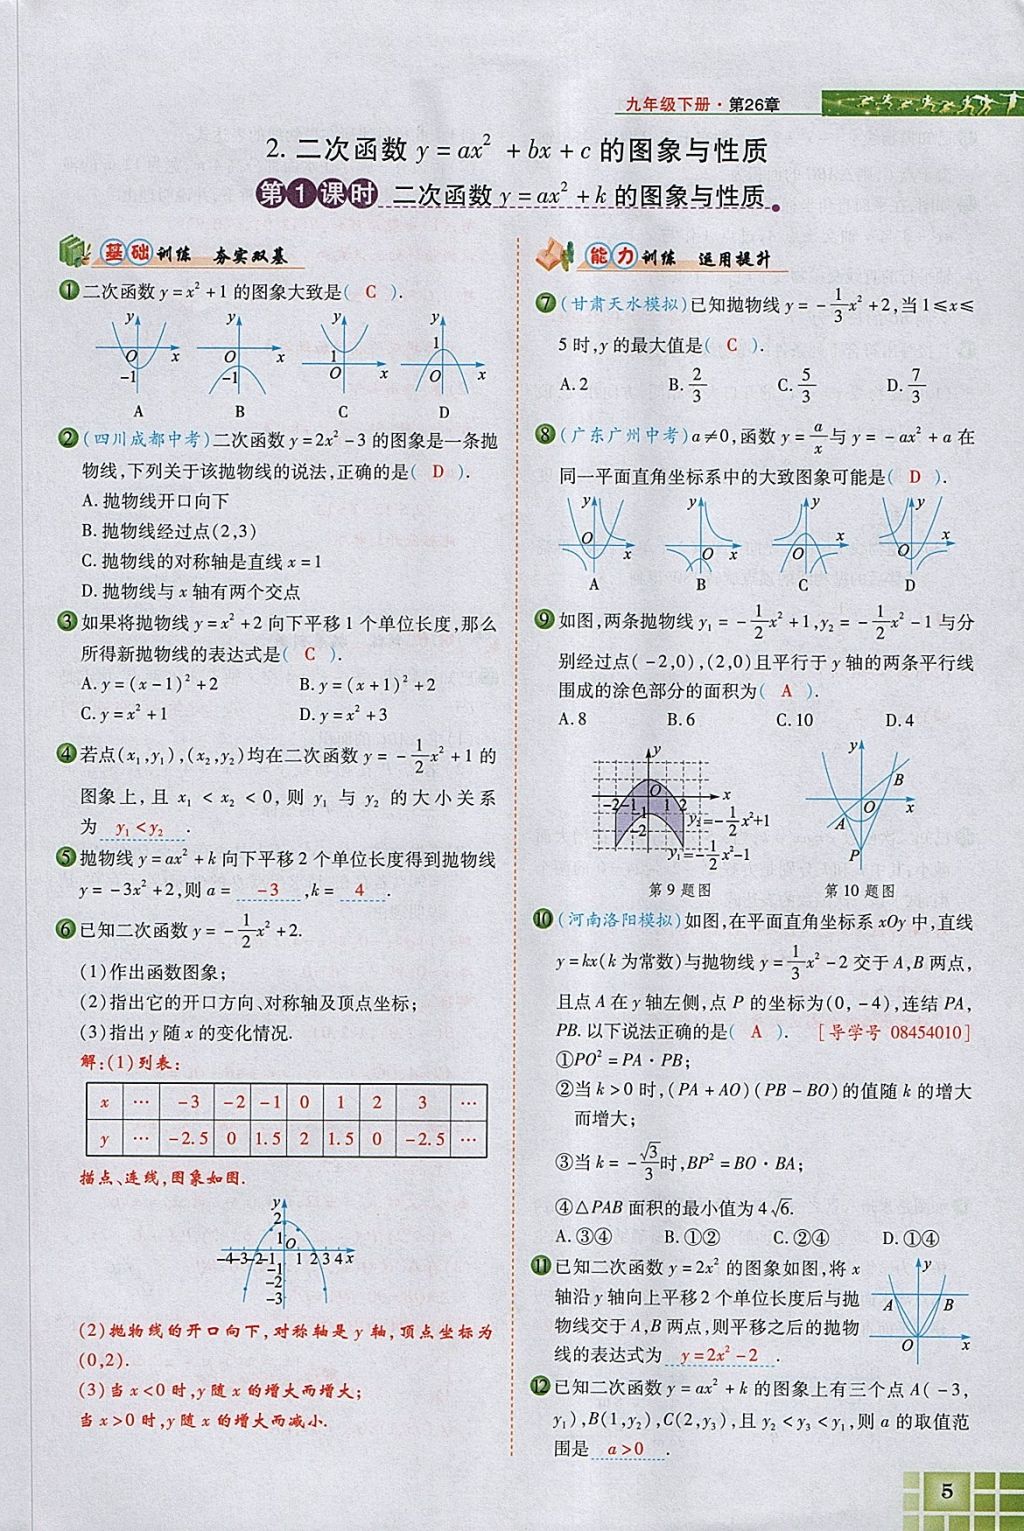 九年级下册·第26章
2. 二次函数 y = ax² + bx + c 的图象与性质
第1课时 二次函数 y = ax² + k 的图象与性质
基础训练 夯实双基
❶ 二次函数 y = x² + 1 的图象大致是( C ).
y y y y
O x O x 1 x 1 x
-1 -1 O O
A B C D
❷ (四川成都中考)二次函数 y = 2x² - 3 的图象是一条抛
物线,下列关于该抛物线的说法,正确的是( D ).
A. 抛物线开口向下
B. 抛物线经过点(2,3)
C. 抛物线的对称轴是直线 x = 1
D. 抛物线与 x 轴有两个交点
❸ 如果将抛物线 y = x² + 2 向下平移 1 个单位长度,那么
所得新抛物线的表达式是( C ).
A. y = (x - 1)² + 2 B. y = (x + 1)² + 2
C. y = x² + 1 D. y = x² + 3
❹ 若点(x₁,y₁),(x₂,y₂)均在二次函数 y = -1/2x² + 1 的
图象上,且 x₁ < x₂ < 0,则 y₁ 与 y₂ 的大小关系
为 y₁ < y₂ .
❺ 抛物线 y = ax² + k 向下平移 2 个单位长度得到抛物线
y = -3x² + 2,则 a = -3 ,k = 4 .
❻ 已知二次函数 y = -1/2x² + 2.
(1)作出函数图象;
(2)指出它的开口方向、对称轴及顶点坐标;
(3)指出 y 随 x 的变化情况.
解:(1)列表:
x … -3 -2 -1 0 1 2 3 …
y … -2.5 0 1.5 2 1.5 0 -2.5 …
描点、连线,图象如图.
y
2
1
O
-4-3-2-1 1 2 3 4 x
-1
-2
-3
(2)抛物线的开口向下,对称轴是 y 轴,顶点坐标为
(0,2).
(3)当 x<0 时,y 随 x 的增大而增大;
当 x>0 时,y 随 x 的增大而减小.
能力训练 运用提升
❼ (甘肃天水模拟)已知抛物线 y = -1/3x² + 2,当 1≤x≤
5 时,y 的最大值是( C ).
A. 2 B. 2/3 C. 5/3 D. 7/3
❽ (广东广州中考)a≠0,函数 y = a/x 与 y = -ax² + a 在
同一平面直角坐标系中的大致图象可能是( D ).
y y y y
O x O x O x O x
A B C D
❾ 如图,两条抛物线 y₁ = -1/2x² + 1,y₂ = -1/2x² - 1 与分
别经过点(-2,0),(2,0)且平行于 y 轴的两条平行线
围成的涂色部分的面积为( A ).
A. 8 B. 6 C. 10 D. 4
y
O
-2 -1 1 2 x
-1
-2
y₂=-1/2x²+1
y₁=-1/2x²-1
第 9 题图
y
B
O x
A
P
第 10 题图
❿ (河南洛阳模拟)如图,在平面直角坐标系 xOy 中,直线
y = kx(k 为常数)与抛物线 y = 1/3x² - 2 交于 A,B 两点,
且点 A 在 y 轴左侧,点 P 的坐标为(0,-4),连结 PA,
PB. 以下说法正确的是( A ). [导学号 08454010]
①PO² = PA·PB;
②当 k > 0 时,(PA + AO)(PB - BO)的值随 k 的增大
而增大;
③当 k = -√3/3时,BP² = BO·BA;
④△PAB 面积的最小值为 4√6.
A. ③④ B. ①② C. ②④ D. ①④
⓫ 已知二次函数 y = 2x² 的图象如图,将 x
轴沿 y 轴向上平移 2 个单位长度后与抛
物线交于 A,B 两点,则平移之后的抛物
线的表达式为 y = 2x² - 2 .
y
A B
O x
⓬ 已知二次函数 y = ax² + k 的图象上有三个点 A(-3,
y₁),B(1,y₂),C(2,y₃),且 y₂ < y₃ < y₁,则 a 的取值范
围是 a > 0 .
5